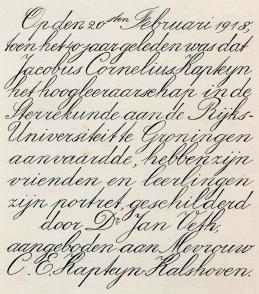 Op den 20sten Februari 1918,
toen het 40 jaar geleden was dat
Jacobus Cornelius Kapteyn
het hoogleeraarschap in de
Sterrekunde aan de Rijks-
Universiteit te Groningen
aanvaardde, hebben zijn
vrienden en leerlingen
zijn portret, geschilderd
door Dr Jan Veth,
aangeboden aan Mevrouw
C. E. Kapteyn-Kalshoven.